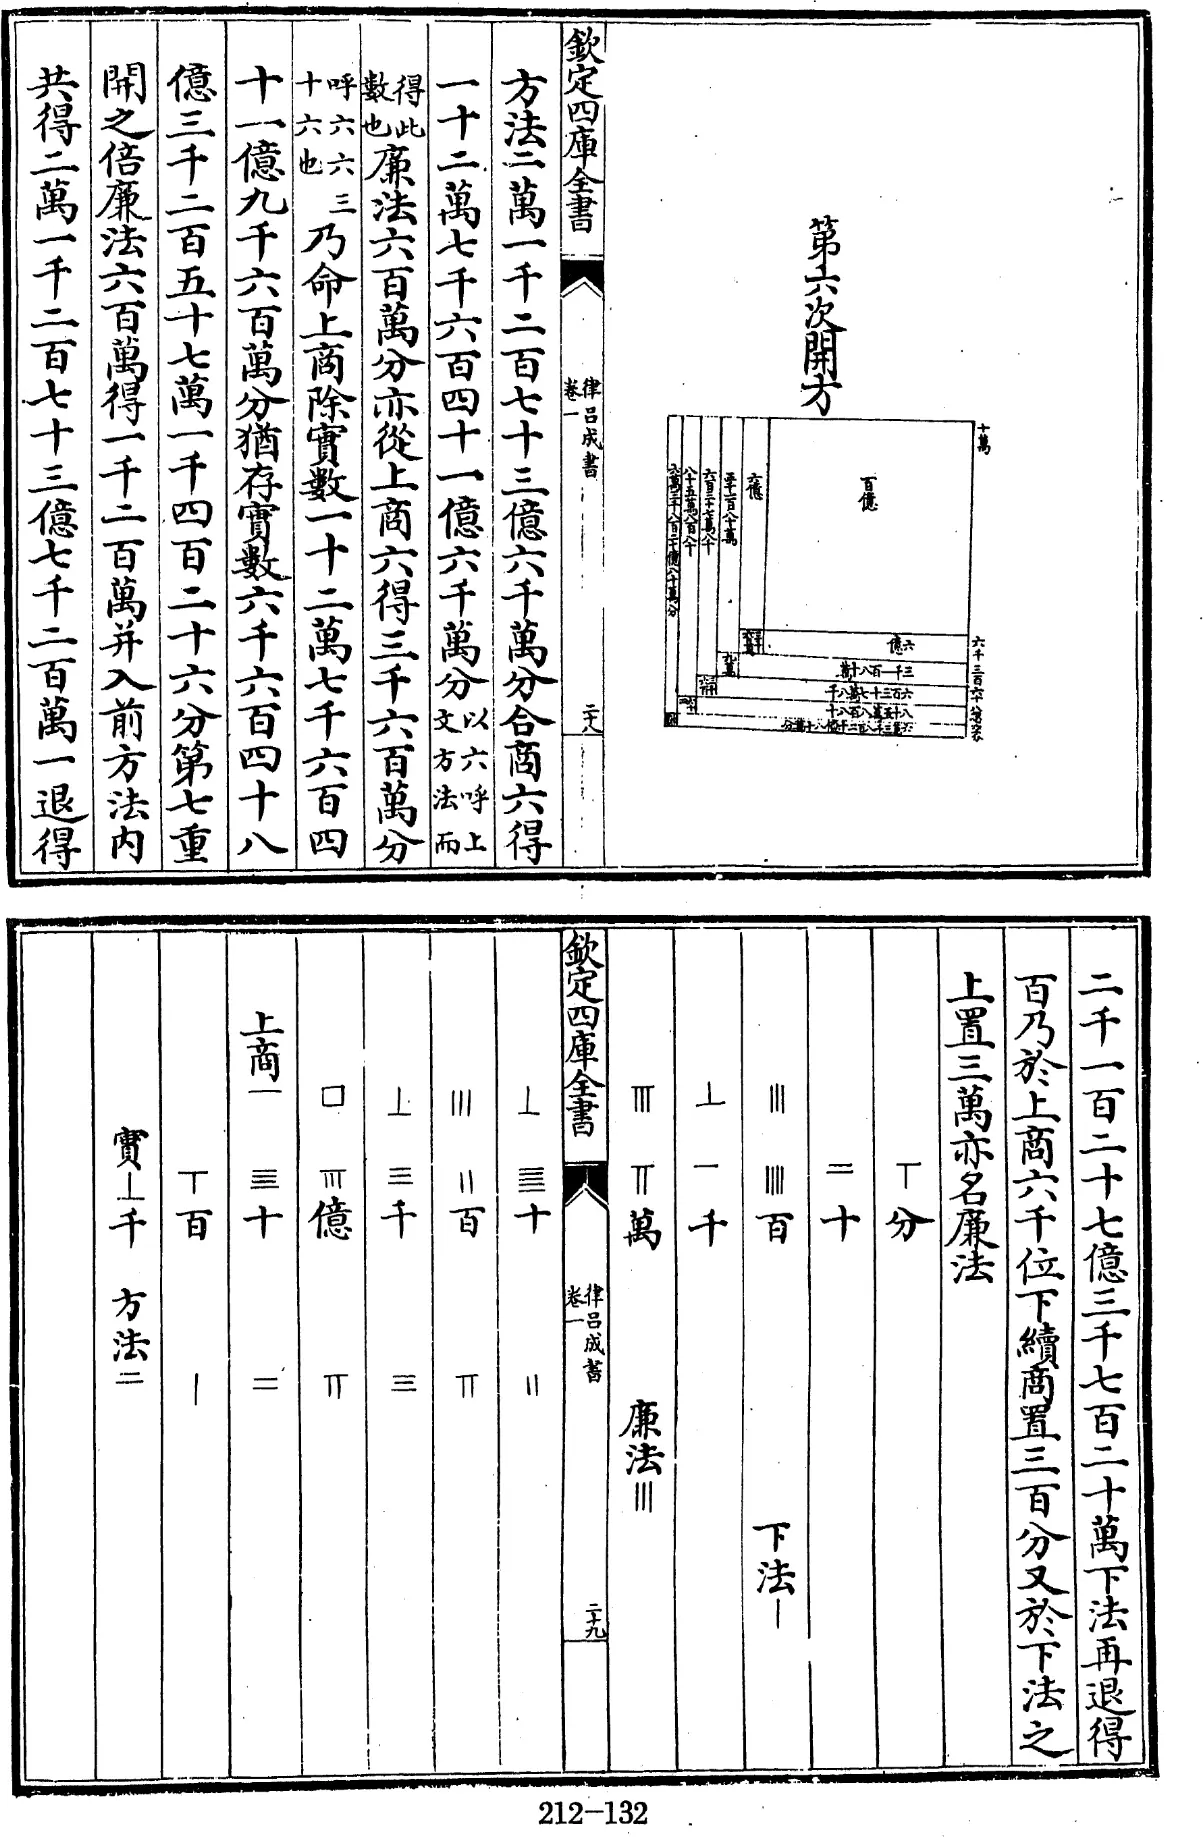 第六次開方
十萬
百億
六億
六億
三千一百八十萬
六百三十七萬八千
八十五萬八百八十
九萬
欽定四庫全書
律呂成書
卷一
二十八
方法二萬一千二百七十三億六千萬分合商六得
一十二萬七千六百四十一億六千萬分以六呼上文方法而
得此數也廉法六百萬分亦從上商六得三千六百萬分
呼六六三十六也乃命上商除實數一十二萬七千六百四
十一億九千六百萬分猶存實數六千六百四十八
億三千二百五十七萬一千四百二十六分第七重
開之倍廉法六百萬得一千二百萬并入前方法內
共得二萬一千二百七十三億七千二百萬一退得
二千一百二十七億三千七百二十萬下法再退得
百乃於上商六千位下續商置三百分又於下法之
上置三萬亦名廉法
丅分
二十
||| |||| 百 下法|
⊥ 一千
|||| 丅丅萬 廉法|||
欽定四庫全書
律呂成書
卷一
二十九
⊥ 十 ||
||| ||百 丅丅
⊥ 三千 三
口 億 丅丅
上商一 十 二
丅百 |
實⊥千 方法二
212-132